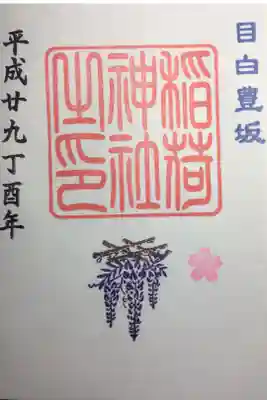 目白豊坂
稲荷
神社
之印
平成廿九丁酉年